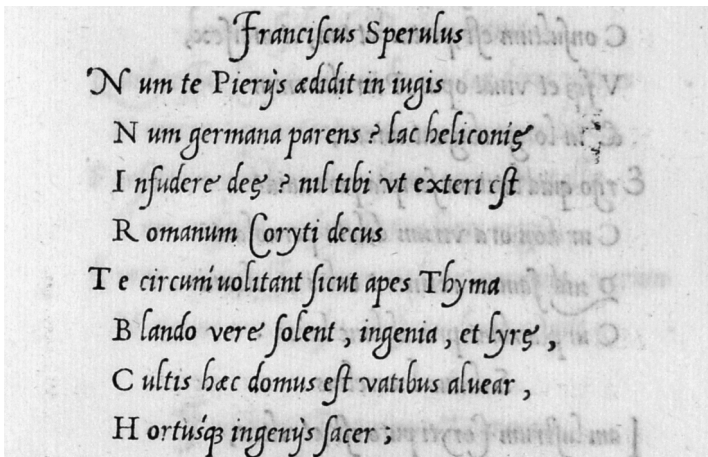 Franciscus Sperulus
Num te Pierijs ædidit in iugis
Num germana parens ? lac heliconię
Infudere deę ? nil tibi vt exteri est
Romanum Coryti decus
Te circumuolitant sicut apes Thyma
Blando vere solent , ingenia , et lyrę ,
Cultis hæc domus est vatibus aluear ,
Hortusq́ꝫ ingenijs sacer ;